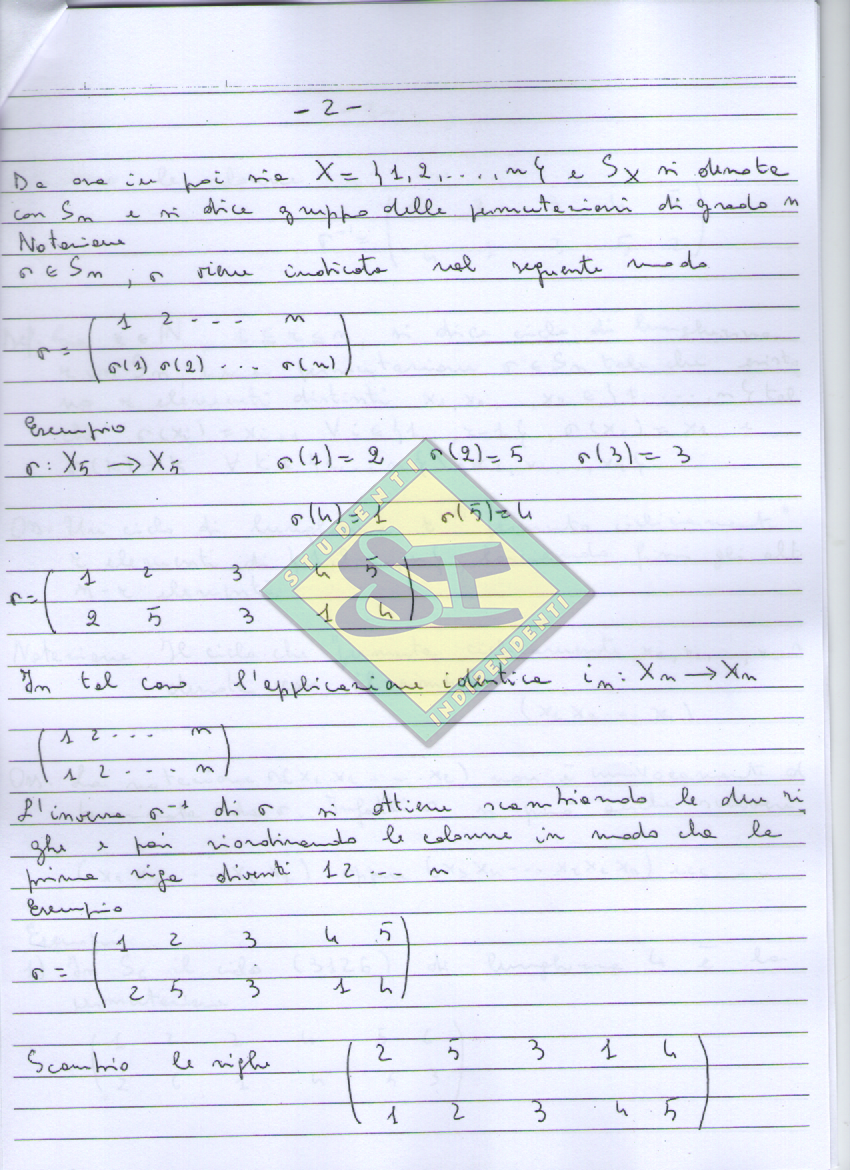 - 2 -
Da ora in poi sia X = {1, 2, ...., n} e S_X si denota
con S_n e si dice gruppo delle permutazioni di grado n
Notazione
σ ∈ S_n, σ viene indicata nel seguente modo
σ = ( 1 2 --- n
σ(1) σ(2) ... σ(n) )
Esempio
σ: X_5 → X_5 σ(1) = 2 σ(2) = 5 σ(3) = 3
σ(4) = 1 σ(5) = 4
σ = ( 1 2 3 4 5
2 5 3 1 4 )
STUDENTI
SI
INDIPENDENTI
In tal caso l'applicazione identica i_n: X_n → X_n
( 1 2 ... n
1 2 .... n )
L'inversa σ⁻¹ di σ si ottiene scambiando le due ri
ghe e poi riordinando le colonne in modo che la
prima riga diventi 1 2 --- n
Esempio
σ = ( 1 2 3 4 5
2 5 3 1 4 )
Scambio le righe ( 2 5 3 1 4
1 2 3 4 5 )